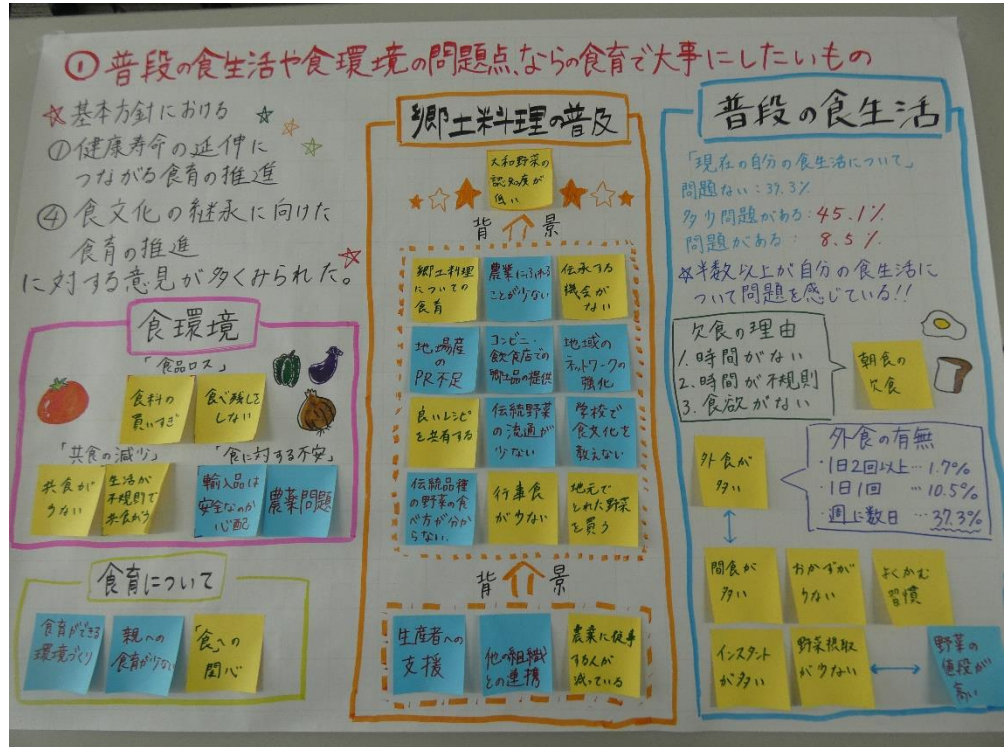 ① 普段の食生活や食環境の問題点、ならの食育で大事にしたいもの
☆基本方針における
①健康寿命の延伸に
つながる食育の推進
④食文化の継承に向けた
食育の推進
に対する意見が多くみられた。
食環境
「食品ロス」
食料の
買いすぎ
食べ残しを
しない
「共食の減少」
「食に対する不安」
共食が
少ない
生活が
不規則で
輸入品は
安全なのか
心配
農薬問題
食育について
食育ができる
環境づくり
親への
食育が少ない
「食」への
関心
郷土料理の普及
大和野菜の
認知度が
低い
背景
郷土料理
についての
食育
農業にふれる
ことが少ない
伝承する
機会が
ない
地場産
の
PR不足
コンビニ・
飲食店での
郷土品の提供
地域の
ネットワークの
強化
良いレシピ
を共有する
伝統野菜
の流通が
少ない
学校で
食文化を
教えない
伝統品種
の野菜の食
べ方が分か
らない。
行事食
が少ない
地元で
とれた野菜
を買う
背景
生産者への
支援
他の組織
との連携
農業に従事
する人が
減っている
普段の食生活
「現在の自分の食生活について」
問題ない:39.3%
多少問題がある:45.1%
問題がある:8.5%
☆半数以上が自分の食生活に
ついて問題を感じている!!
欠食の理由
1. 時間がない
2. 時間が不規則
3. 食欲がない
朝食の
欠食
外食が
多い
外食の有無
・1日2回以上…1.7%
・1日1回 …10.5%
・週に数日 …37.3%
間食が
多い
おかずが
少ない
よくかむ
習慣
インスタント
が多い
野菜摂取
が少ない
野菜の
値段が
高い